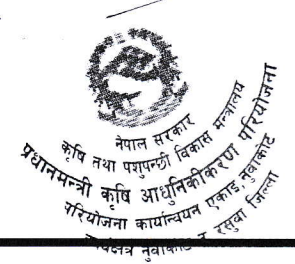 नेपाल सरकार
कृषि तथा पशुपन्छी विकास मन्त्रालय
प्रधानमन्त्री कृषि आधुनिकीकरण परियोजना
परियोजना कार्यान्वयन एकाई, नुवाकोट
कार्यक्षेत्र नुवाकोट र रसुवा जिल्ला